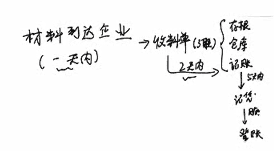 材料到达企业
(一天内)
→ 收料单(5联)
2天内
存根
仓库
记账
↓5天内
记账
↓
登账